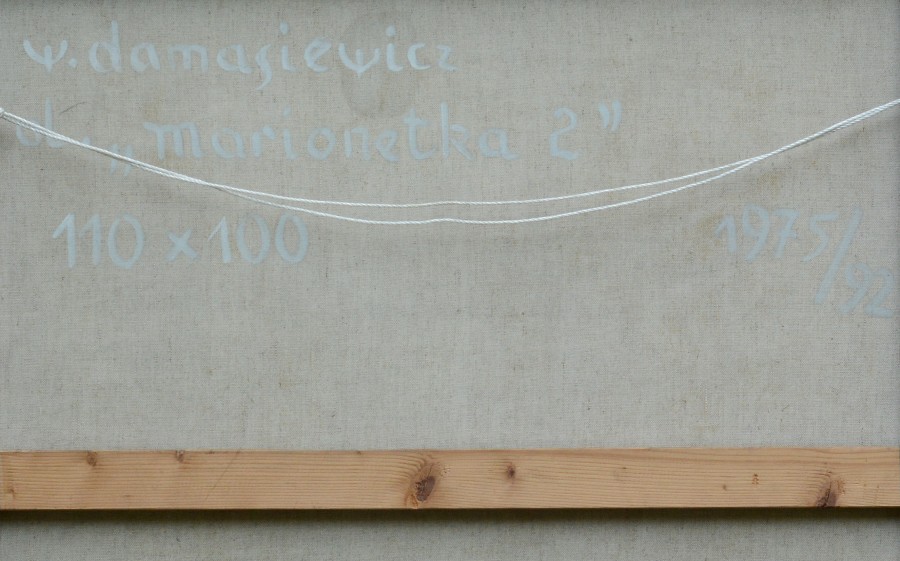 w. damasiewicz
ol. „Marionetka 2”
110 x 100 1975/92